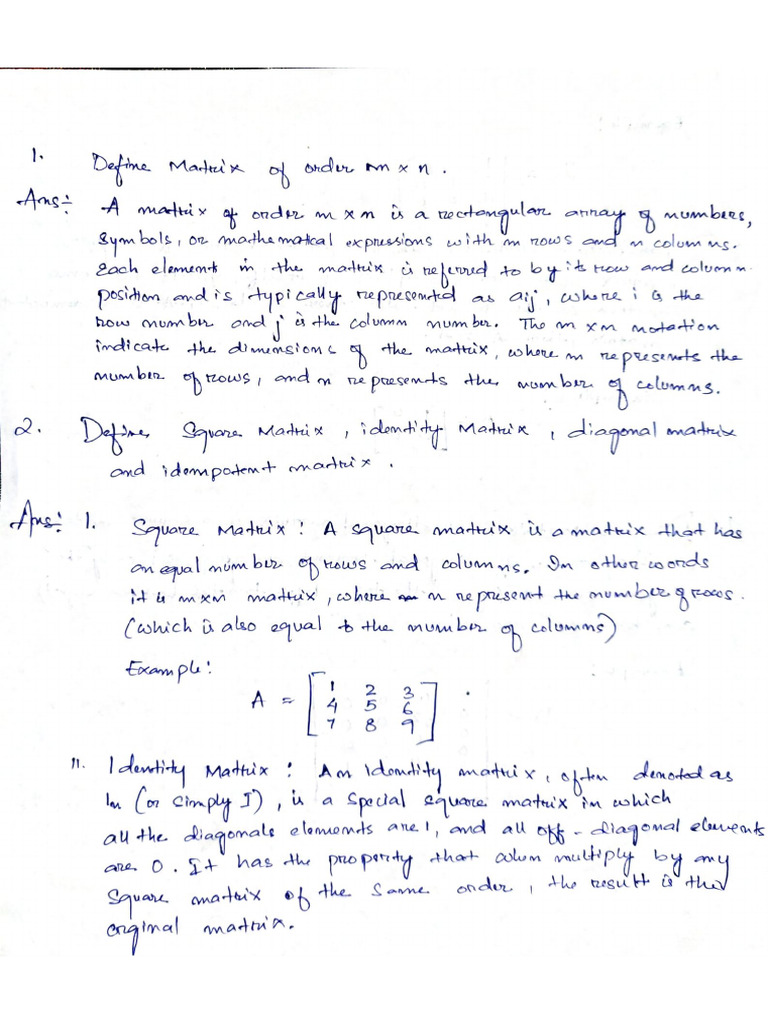 1. Define Matrix of order m × n.
Ans:- A matrix of order m × n is a rectangular array of numbers,
symbols, or mathematical expressions with m rows and n columns.
Each element in the matrix is referred to by its row and column
position and is typically represented as aij, where i is the
row number and j is the column number. The m × n notation
indicate the dimensions of the matrix, where m represents the
number of rows, and n represents the number of columns.
2. Define Square Matrix, identity Matrix, diagonal matrix
and idempotent matrix.
Ans:- 1. Square Matrix: A square matrix is a matrix that has
an equal number of rows and columns. In other words
it is n×n matrix, where n represent the number of rows.
(which is also equal to the number of columns)
Example:
A = [ 1 2 3
4 5 6
7 8 9 ]
11. Identity Matrix: An Identity matrix, often denoted as
In (or simply I), is a special square matrix in which
all the diagonals elements are 1, and all off-diagonal elements
are 0. It has the property that when multiply by any
square matrix of the same order, the result is the
original matrix.